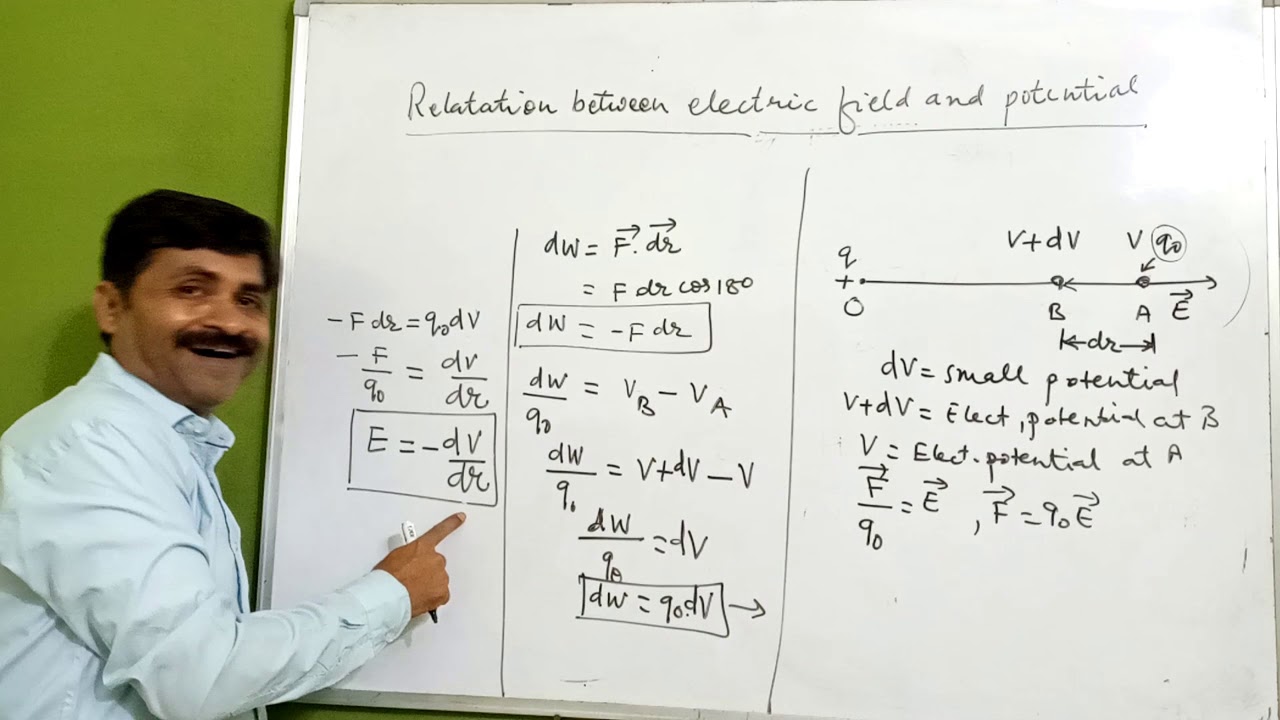 Relatation between electric field and potential
-F dr = q₀dV
-F/q₀ = dV/dr
E = -dV/dr
dW = F⃗. d⃗r
= F dr cos 180
dW = -F dr
dW/q₀ = V_B - V_A
dW/q₀ = V+dV - V
dW/q₀ = dV
dW = q₀.dV →
q V+dV V q₀
+
O B A E⃗
dr
dV = small potential
V+dV = Elect, potential at B
V = Elect. potential at A
F⃗/q₀ = E⃗ , F⃗ = q₀E⃗